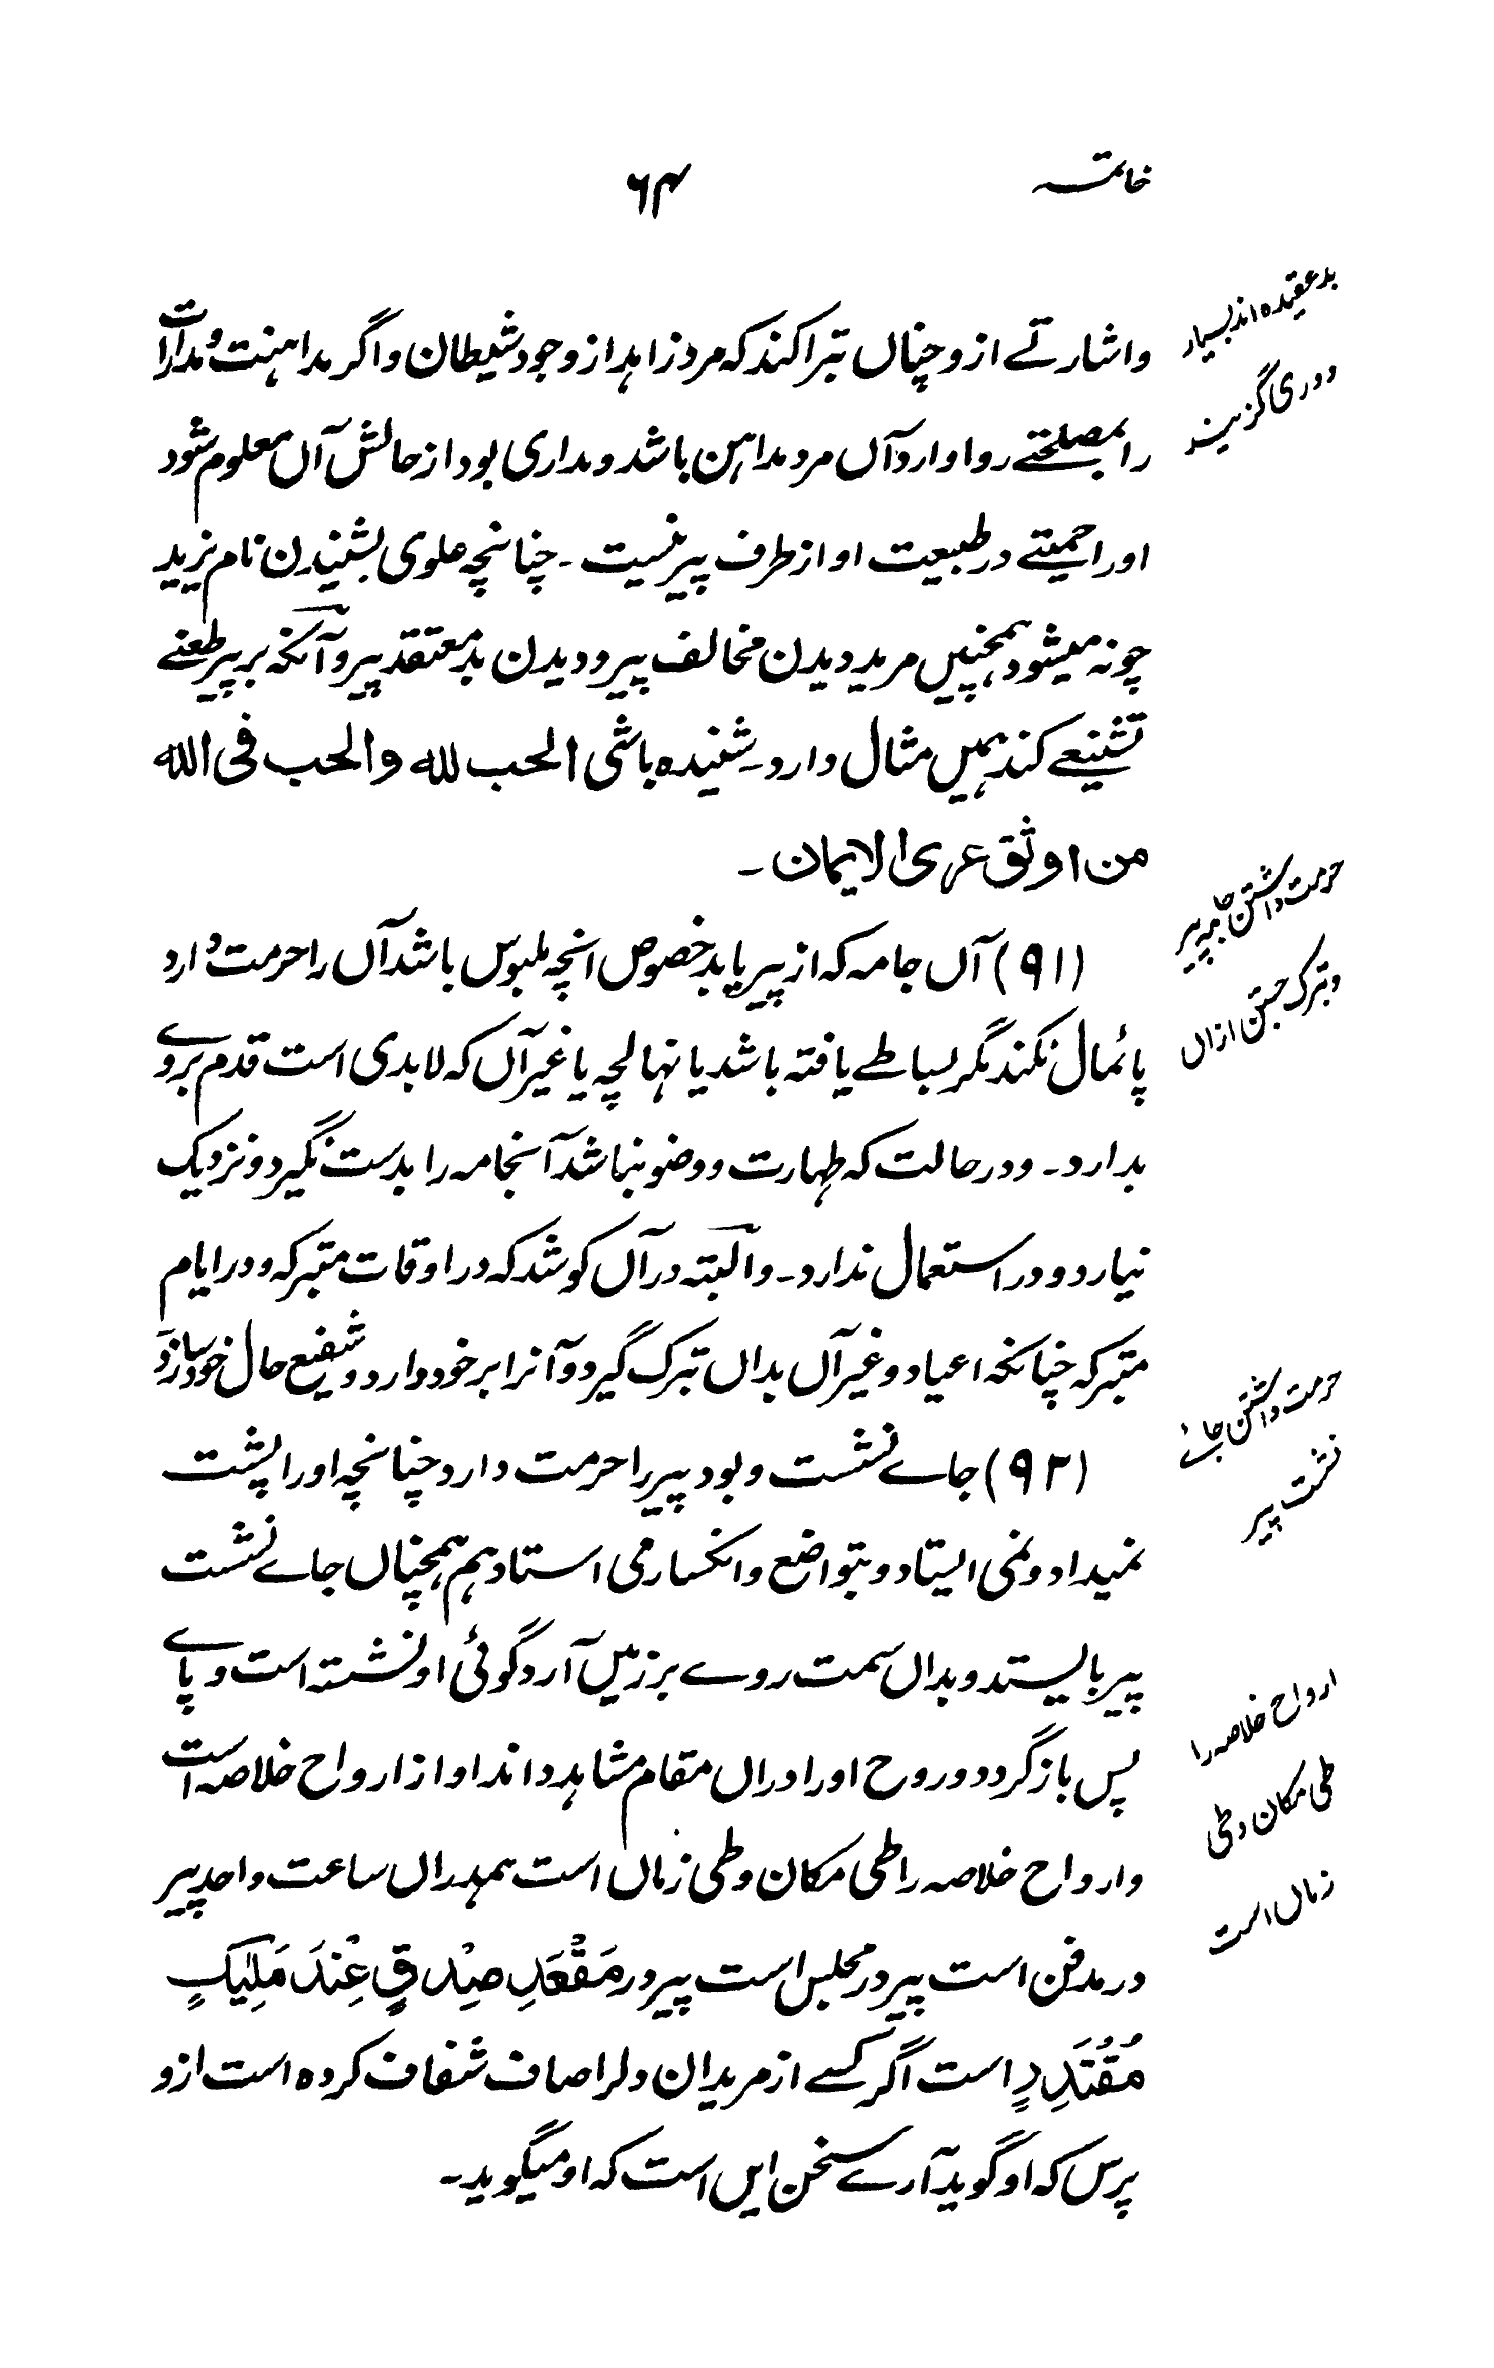 خاتمه
۶۴
بدعقیده اند بسیار
دوری گزیند
واشارتے ازو چناں تبرا کند که مرد زاهد از وجود شیطان واگر مداهنت و مدارات
را بمصلحتے روا دارد آں مرد مداهن باشد ومداری بود از حالش آں معلوم شود
اورا حمیتے در طبیعت او از طرف پیر نیست ۔ چنانچه علوی بشنیدن نام یزید
چونه میشود همچنیں مرید دیدن مخالف پیر ودیدن بد معتقد پیر وآنکه بر پیر طعنے
تشنیعے کند همیں مثال دارد ۔ شنیده باشی الحب لله والحب فی الله
من اوثق عری الایمان ۔
حرمت داشتن جامه پیر
وتبرک جستن ازاں
(۹۱) آں جامه که از پیر یابد خصوص انچه ملبوس باشد آں را حرمت دارد
پائمال نکند مگر بساطے یافته باشد یا نهالچه یا غیر آں که لابدی است قدم بروے
بدارد ۔ ودر حالت که طهارت ووضو نباشد آنجامه را بدست نگیرد ونزدیک
نیارد ودر استعمال ندارد ۔ والبته درآں کوشد که در اوقات متبرکه ودر ایام
متبرکه چنانکه اعیاد وغیر آں بداں تبرک گیرد وآنرا بر خود دارد وشفیع حال خود سازد
حرمت داشتن جائے
نشست پیر
(۹۲) جاے نشست وبود پیر را حرمت دارد چنانچه اورا پشت
نمیداد ونمی ایستاد وبتواضع وانکسار می استاد هم همچناں جاے نشست
پیر بایستد وبداں سمت روے بر زمیں آرد گوئی او نشسته است وپاے
پس باز گردد وروح اورا دراں مقام مشاهد داند او از ارواح خلاصه است
ارواح خلاصه را
طی مکان وطی
زماں است
وارواح خلاصه را طی مکان وطی زماں است همدراں ساعت واحد پیر
در مدفن است پیر در مجلس است پیر در مَقْعَدِ صِدْقٍ عِنْدَ مَلِیْکٍ
مُقْتَدِرٍ است اگر کسے از مریدان دلرا صاف شفاف کرده است ازو
پرس که او گوید آرے سخن ایں است که او میگوید ۔